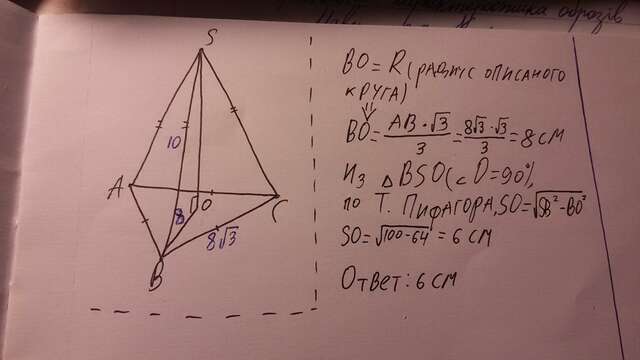 S
10
A
O
8
C
8√3
B
BO = R (радиус описаного
круга)
BO = AB·√3/3 = 8√3·√3/3 = 8 см
Из △BSO (∠O=90°),
по Т. Пифагора, SO = √SB²-BO²
SO = √100-64 = 6 см
Ответ: 6 см